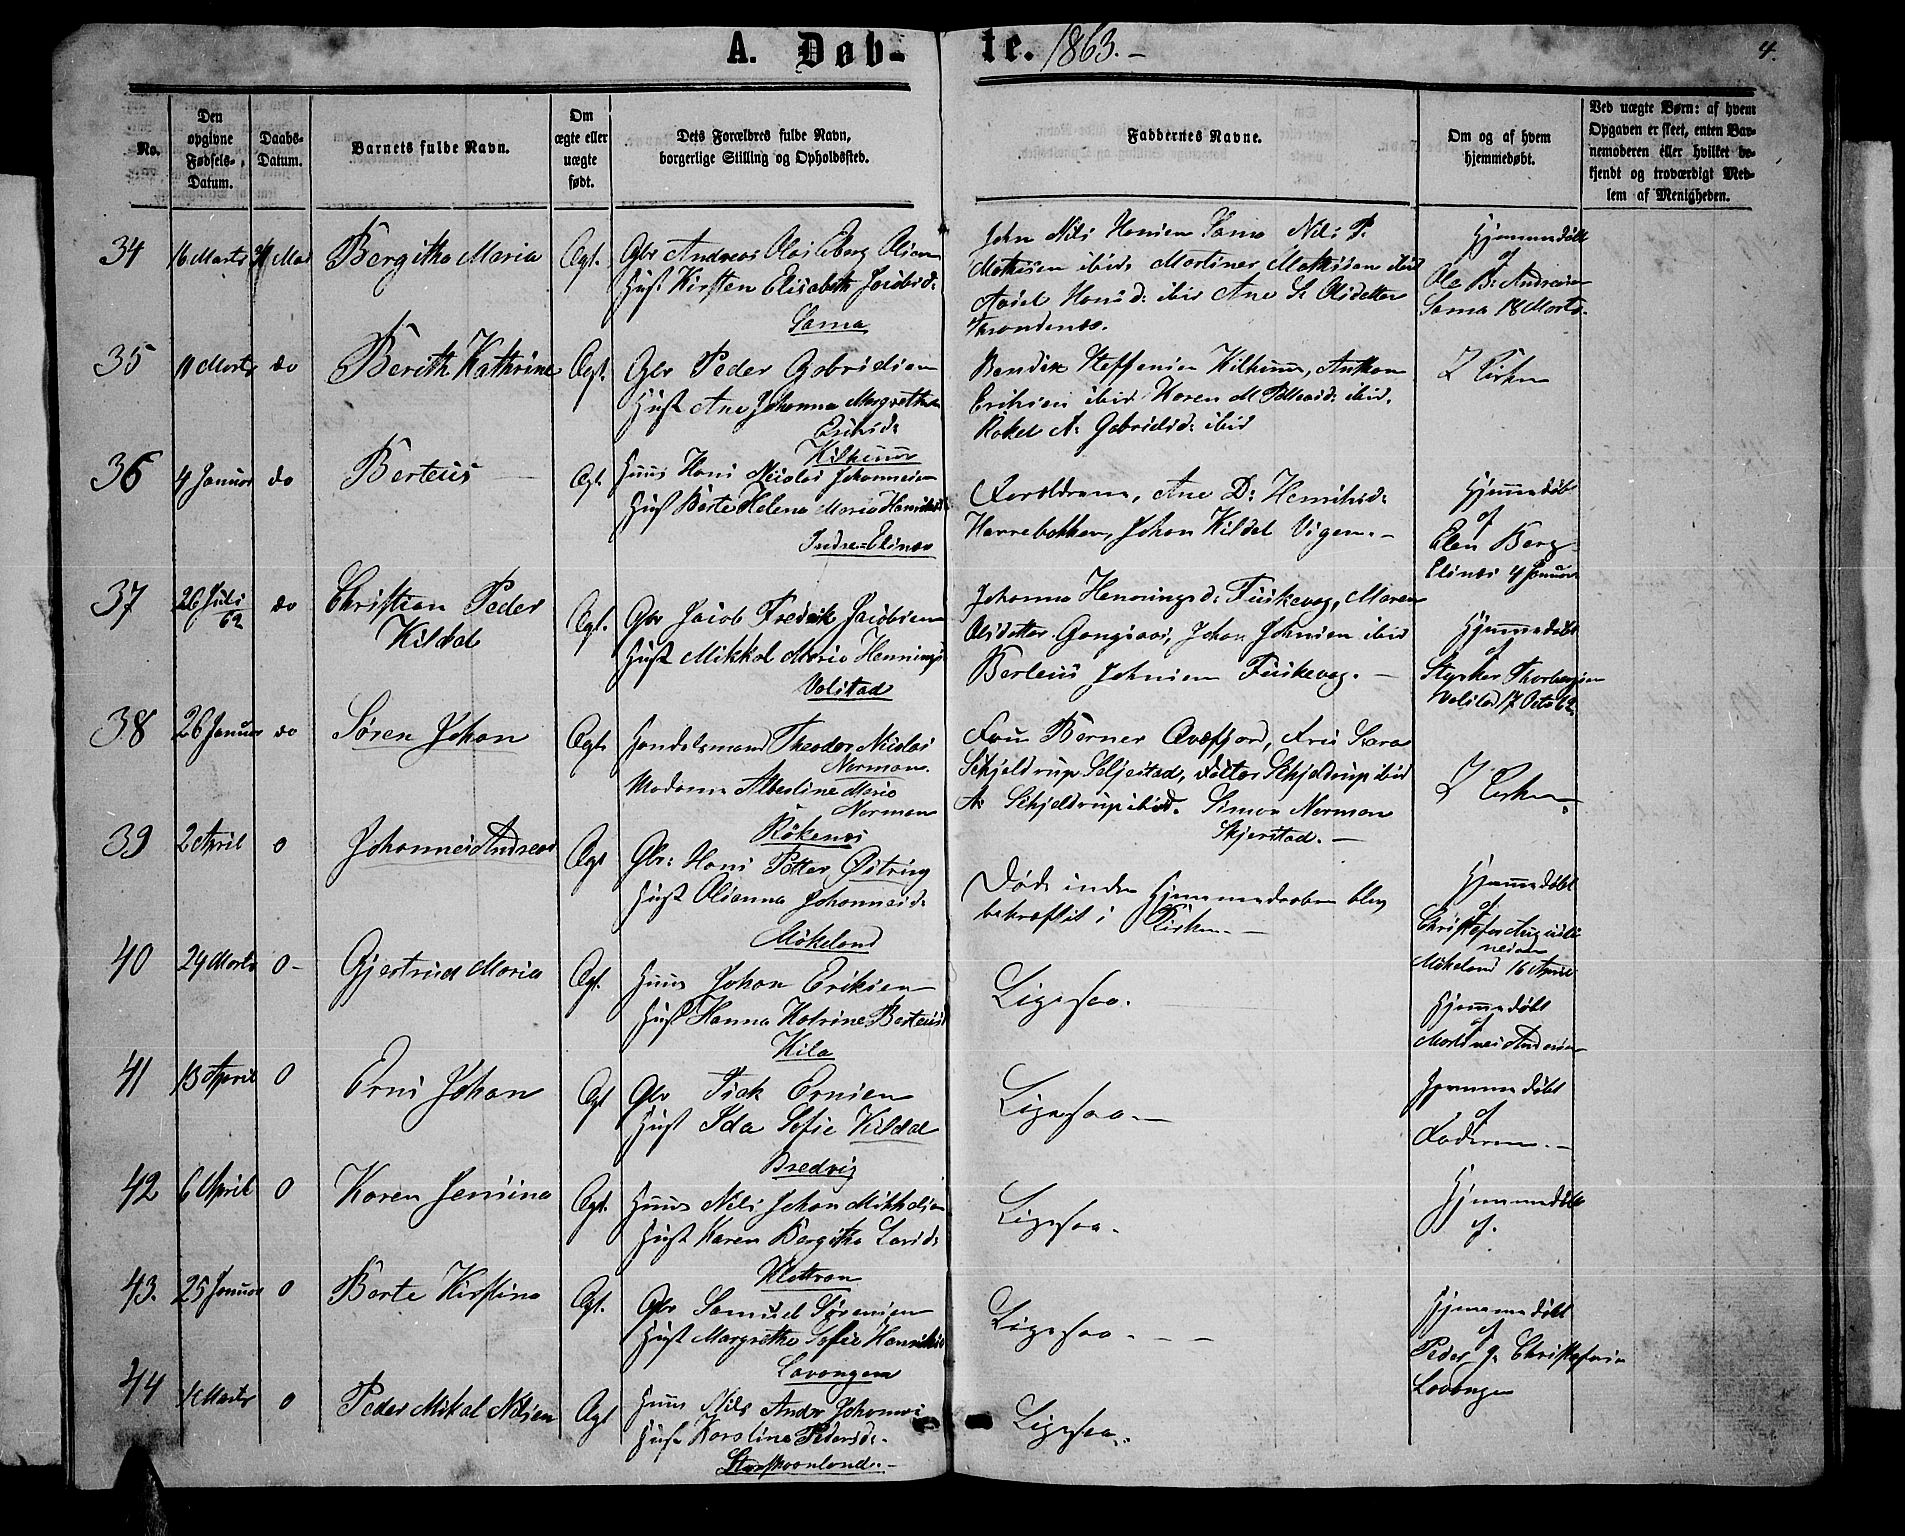 A. Døb- te. 1863.-
4.
No.
Den opgivne Fødsels-Datum.
Daabs-Datum.
Barnets fulde Navn.
Om ægte eller uægte født.
Dets Forældres fulde Navn, borgerlige Stilling og Opholdssted.
Faddernes Navne.
Om og af hvem hjemmedøbt.
Ved uægte Børn: af hvem Opgaven er skeet, enten Barnemoderen eller hvilket bekjendt og troværdigt Medlem af Menigheden.
34 16 Marts Bergitha Maria Ægt.
Gbr Andreas Olai Eberg Olsen
Hust Kirsten Elisabeth Jacobsd:
Sama
John Nils Hansen Sama Nils P.
Mathisen ibid: Martines Mathisen ibid
Hansd: ibid Ane S. Olsdatter
Trondenæs.
Hjemmedøbt
af
Ole B: Andreasen
Sama 18 Marts.
35 11 Marts do Bereth Kathrine Ægt.
Gbr Peder Gabrielsen
Hust Ane Johanna Margrethe
Eriksd:
Kilhuus
Bendik Steffensen Kilhuus, Anton
Eriksen ibid Karen M ibid.
Rakel A: Gabrielsd: ibid
I Kirken
36 4 Januar do Berteus Ægt.
Huus Hans Nicolai Johannesen
Hust Berte Helena Maria Henriksd:
Indre-Elinæs
Forældrene, Ane D: Henriksd:
Harrebakken, Johan Kildal Vigen.-
Hjemmedøbt
af
Elen Berg
Elinæs 4 Januar
37 26 Juli 62 do Christian Peder
Kildal Ægt.
Gbr Jacob Fredrik Jacobsen
Hust Mikkal Maria Hennings
Volstad
Johanna Henningsd: Fiskevog, Maren
Olsdatter Gangsaas, Johan Johnsen ibid
Berteus Johnsen Fiskevog. -
Hjemmedøbt
af
Styrker Thorbergsen
Volstad 17 Octb 62.
38 26 Januar do Søren Johan Ægt.
Handelsmand Theodor Nicolai
Norman.
Madame Albertine Maria
Norman
Røkenæs
Fru Berner Qvæfjord, Frk Sara
Schjeldrup Seljestad, Schjeldrup ibid
A: Schjeldrup ibid. Simon Norman
Skjerstad. -
I Kirken.
39 2 April 0 Johannes Andreas Ægt
Gbr: Hans Petter Østring
Hust Olianna Johannesd:
Møkeland
Døde inden Hjemmedaaben blev
bekræftet i Kirken. -
Hjemmedøbt
af
Christofer Augusti
nesen
Møkeland 16 April
40 24 Marts 0- Gjertrud Maria Ægt.
Huus Johan Eriksen
Hust Hanna Katrine Berteusd
Kila
Ligesaa.
Hjemmedøbt
af
Martines Andersen
41 13 April 0 Erns Johan Ægt
Gbr Isak Ernsen
Hust Ida Sofie Kildal
Bredvig
Ligesaa. -
Hjemmedøbt
af
Faderen. -
42 6 April 0 Karen Jensina Ægt.
Huus Nils Johan Mikkelsen
Hust Karen Bergitha Larsd:
Klottran
Ligesaa.
Hjemmedøbt
af.
43. 25 Januar 0 Berte Kirstina Ægt.
Gbr Samuel Sørensen
Hust Margretha Sofie Henriksd
Lavangen
Ligesaa. - -
Hjemmedøbt
af
Peder J. Christofersen
Lavangen
44 Marts 0 Peder Mikal Nilsen Ægt
Huus Nils Andr Johannes
Hust Karoline Pedersd:
Ligesaa..